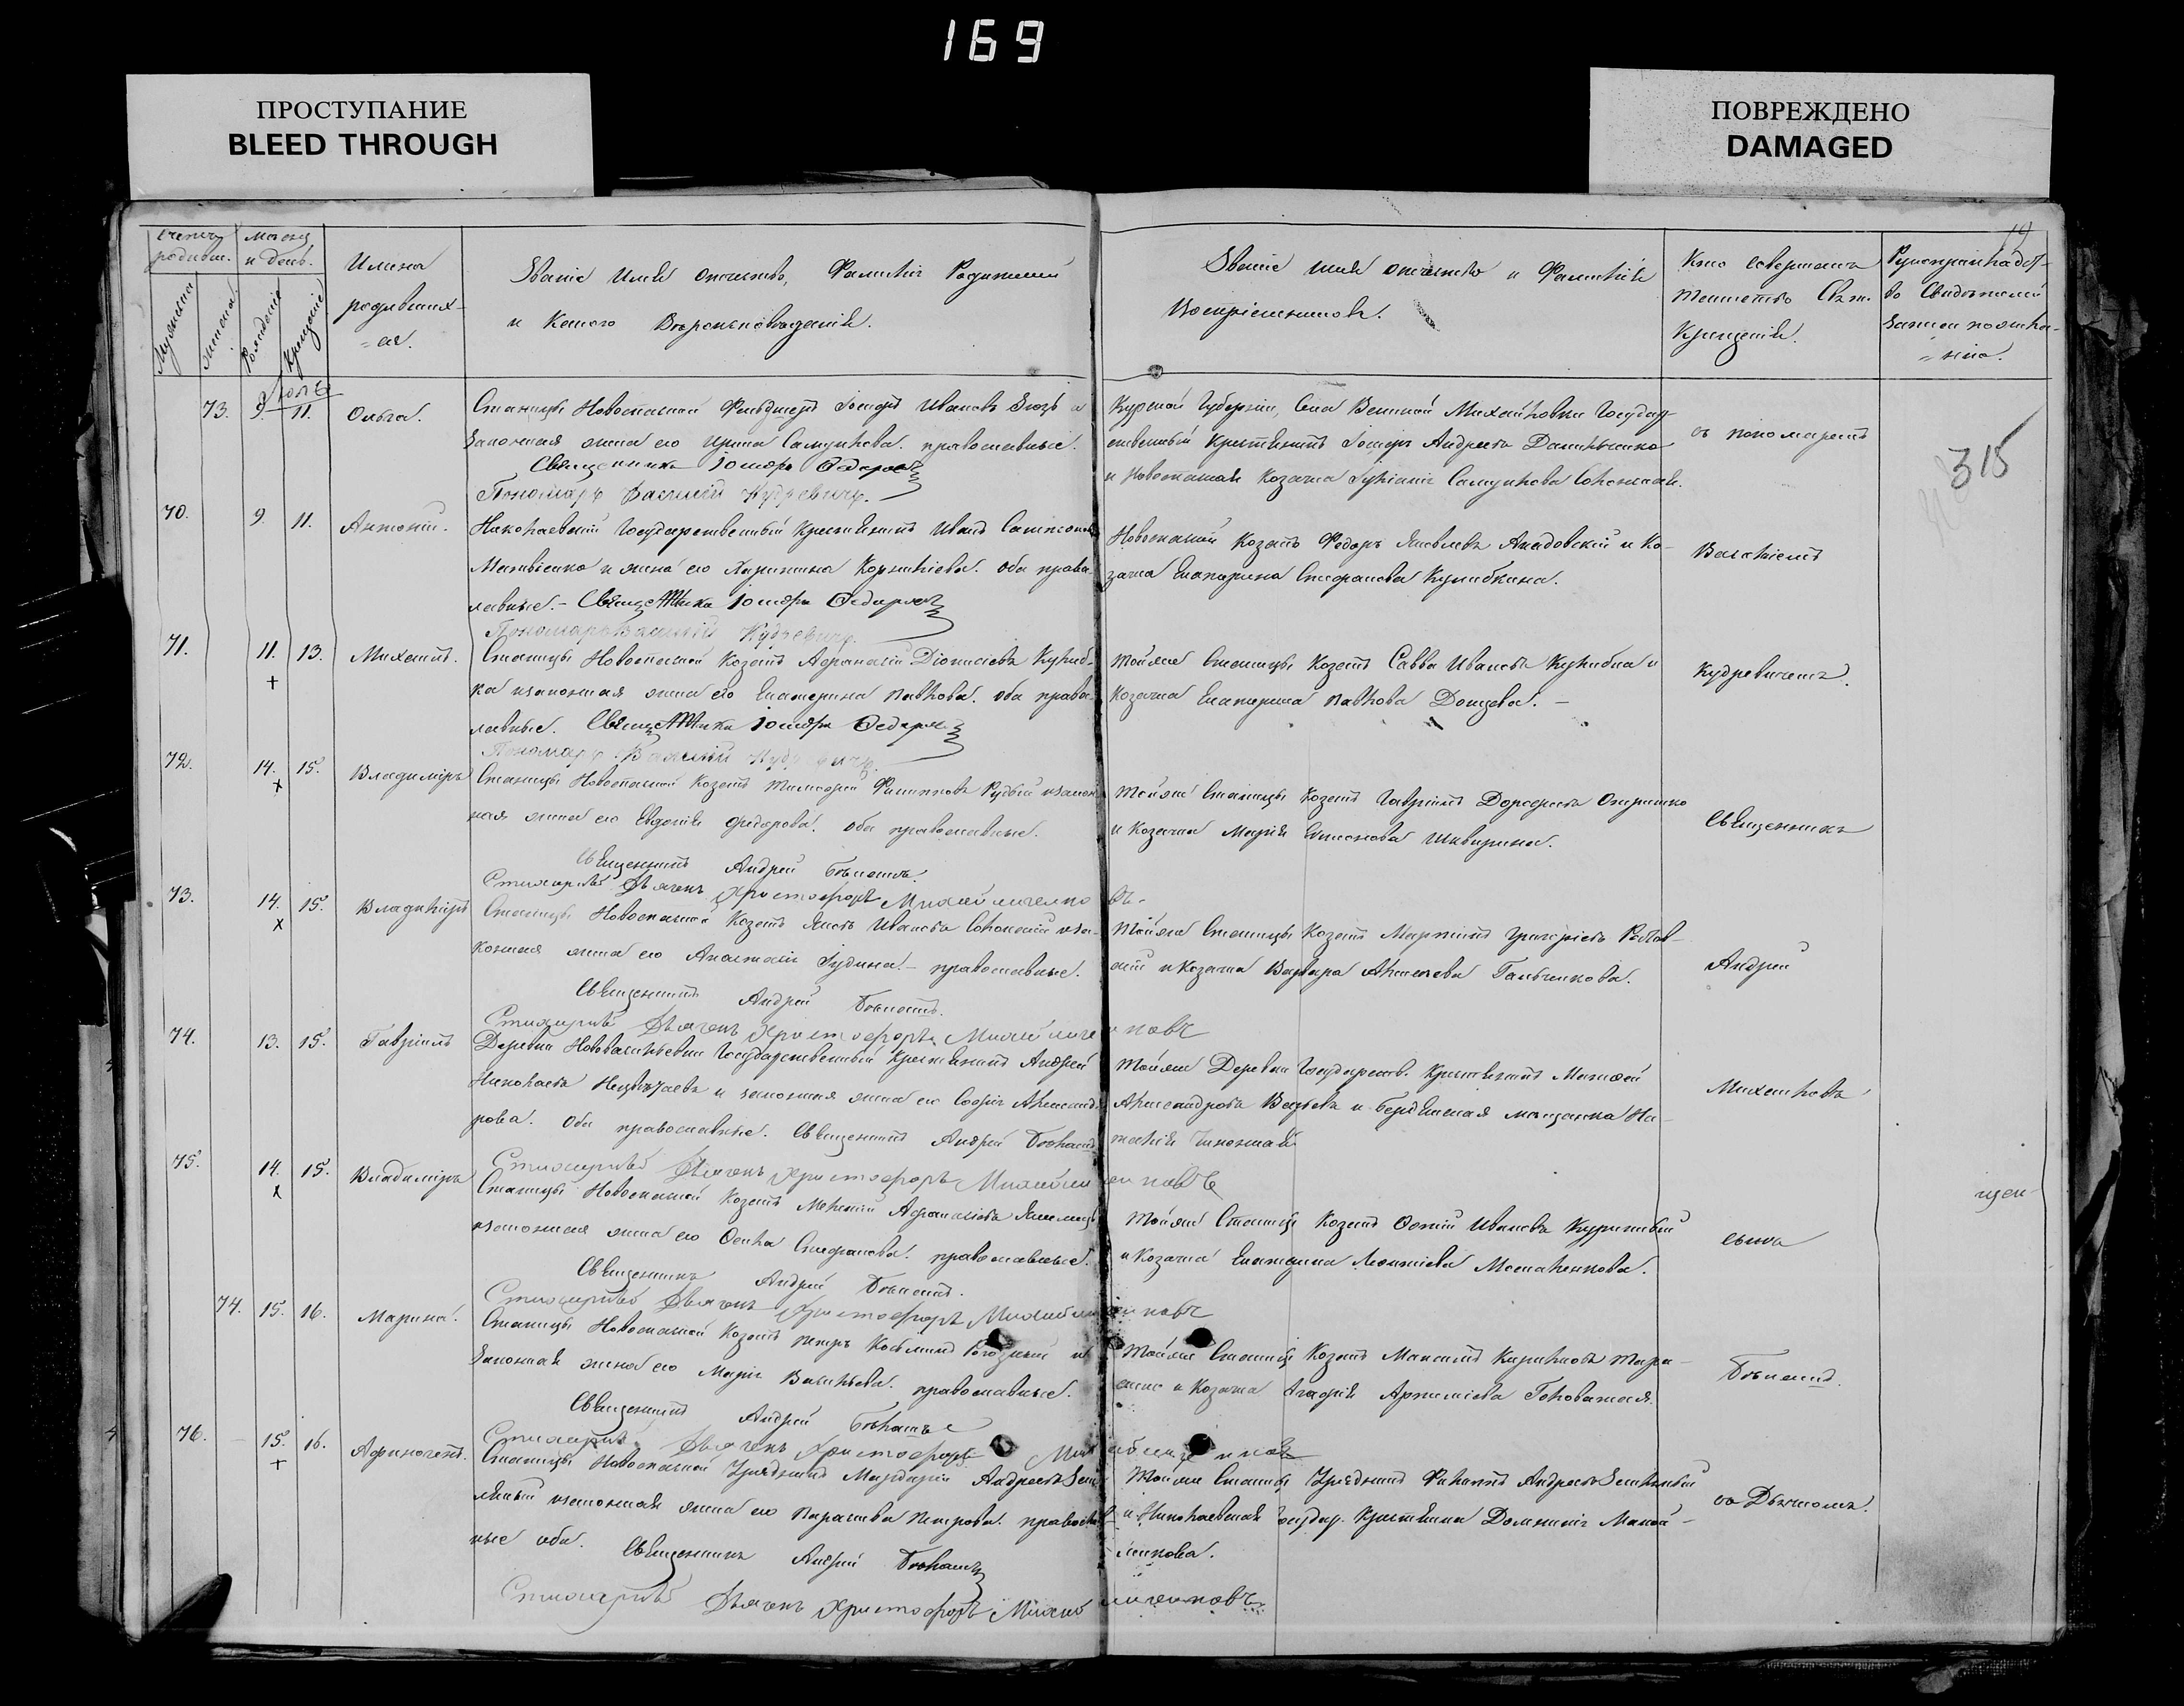 169
ПРОСТУПАНИЕ
BLEED THROUGH
ПОВРЕЖДЕНО
DAMAGED
Счетъ родивш.
Мужеска
женска
месяц и день.
Рождения
Крещенiе
Имена
родивших-
=ся.
Званiе Имя отчество, Фамилiя Родителей
и Какого Вероисповеданiя.
Званiе имя отчество и Фамилiя
Воспрiемниковъ.
Кто совершалъ
таинство Свят.
Крещенiя.
Рукоприкладст-
во Свидетелей
записи по жела-
=нiю.
Iюль
73. 9. 11. Ольга.
Станицы Новоспасской Фельдшеръ Iосифъ Ивановъ Зюзь и
Законная жена его Ирина Самуилова. православные.
Священникъ Iосифъ Федоровъ
Пономарь Василiй Кудревичъ.
Курской Губернiи, Села Великой Михайловки Государ-
ственный Крестьянинъ Iосифъ Андреевъ Данильченко
и Новоспасская Козачка Iулiанiя Самуилова Соломаха.
съ пономаремъ
315
70. 9. 11. Антонiй.
Николаевскiй Государственный Крестьянинъ Иванъ Самсоновъ
Матвiенко и жена его Харитина Корнилiева. оба право-
славные. - Священникъ Iосифъ Федоровъ
Пономарь Василiй Кудревичъ.
Новоспасскiй Козакъ Федоръ Яковлевъ и Ко-
зачка Екатерина Стефанова Кулибкина.
Василiемъ
71. 11. 13. Михаилъ.
Станицы Новоспасской Козакъ Афанасiй Дiонисiевъ Кулиб-
ка и законная жена его Екатерина Павлова. оба право-
славные. Священникъ Iосифъ Федоровъ
Пономарь Василiй Кудревичъ.
Тойже Станицы Козакъ Савва Ивановъ Кулибка и
Козачка Екатерина Павлова Донцева. -
Кудревичемъ.
72. 14. 15. Владимiръ
Станицы Новоспасской Козакъ Тимофей Филипповъ Рудый и закон-
ная жена его Евдокiя Федорова. оба православные.
Священникъ Андрей
Стихарный Дьячекъ Христофоръ Михайличенковъ.
Тойже Станицы Козакъ Гаврiилъ Дорофеевъ Онришко
и Козачка Марiя
Священникъ
73. 14. 15. Владимiръ
Станицы Новоспасской Козакъ Яковъ Ивановъ и за-
конная жена его Анастасiя Iудина. - православные.
Священникъ Андрей
Стихарный Дьячекъ Христофоръ Михайличенковъ
Тойже Станицы Козакъ Мартинъ Григорiевъ
и Козачка Варвара Алексеева Гальченкова.
Андрей
74. 13. 15. Гаврiилъ
Деревни Нововасильевки Государственный Крестьянинъ Андрей
Николаевъ и законная жена его Софiя Александ-
рова. Оба православные. Священникъ Андрей
Стихарный Дьячекъ Христофоръ Михайличенковъ
Тойже Деревни Государств. Крестьянинъ Матвей
Александровъ и Бердянская мещанка На-
талiя
Михаиловъ
75. 14. 15. Владимiръ
Станицы Новоспасской Козакъ Мелетiй Афанасiевъ
и законная жена его Фекла Стефанова. православные.
Священникъ Андрей
Стихарный Дьячекъ Христофоръ Михайличенковъ
Тойже Станицы Козакъ Ивановъ
и Козачка Екатерина Леонтiева
сынъ
щен-
74. 15. 16. Марина.
Станицы Новоспасской Козакъ Петръ Косьминъ и
Законная жена его Марiя Васильева. православные.
Священникъ Андрей
Стихарный Дьячекъ Христофоръ Михайличенковъ
Тойже Станицы Козакъ Максимъ Кириловъ Тара-
сенко и Козачка Агафiя Артемiева Головатая.
76. 15. 16. Афиногенъ.
Станицы Новоспасской Урядникъ Мардарiй Андреевъ Зем-
ляный и законная жена его Параскева Петрова. православ-
ные оба. Священникъ Андрей
Стихарный Дьячекъ Христофоръ Михайличенковъ
Тойже Станицы Урядникъ Андреевъ Земляный
и Николаевская Государ. Крестьянка Домникiя Маной-
ленкова.
съ Дьячкомъ.